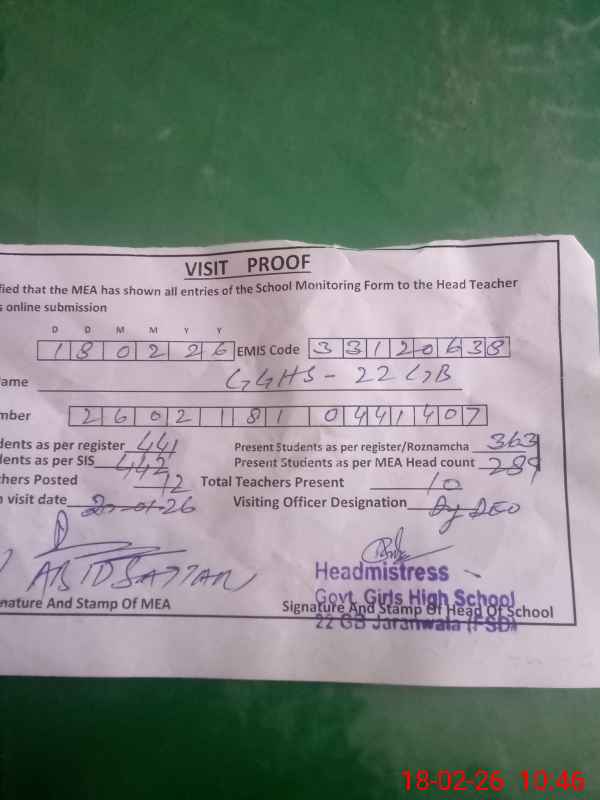 VISIT PROOF
fied that the MEA has shown all entries of the School Monitoring Form to the Head Teacher
s online submission
D D M M Y Y
1 8 0 2 2 6 EMIS Code 3 3 1 2 0 6 3 8
ame GGHS - 22 GB
mber 2 6 0 2 1 8 1 0 4 4 1 4 0 7
dents as per register 441 Present Students as per register/Roznamcha 363
dents as per SIS 442 Present Students as per MEA Head count 289
chers Posted 12 Total Teachers Present 10
n visit date -01-26 Visiting Officer Designation Dy DEO
ABID SATTAR
Headmistress
Govt. Girls High School
nature And Stamp Of MEA Signature And Stamp Of Head Of School
22 GB Jaranwala (FSD)
18-02-26 10:46